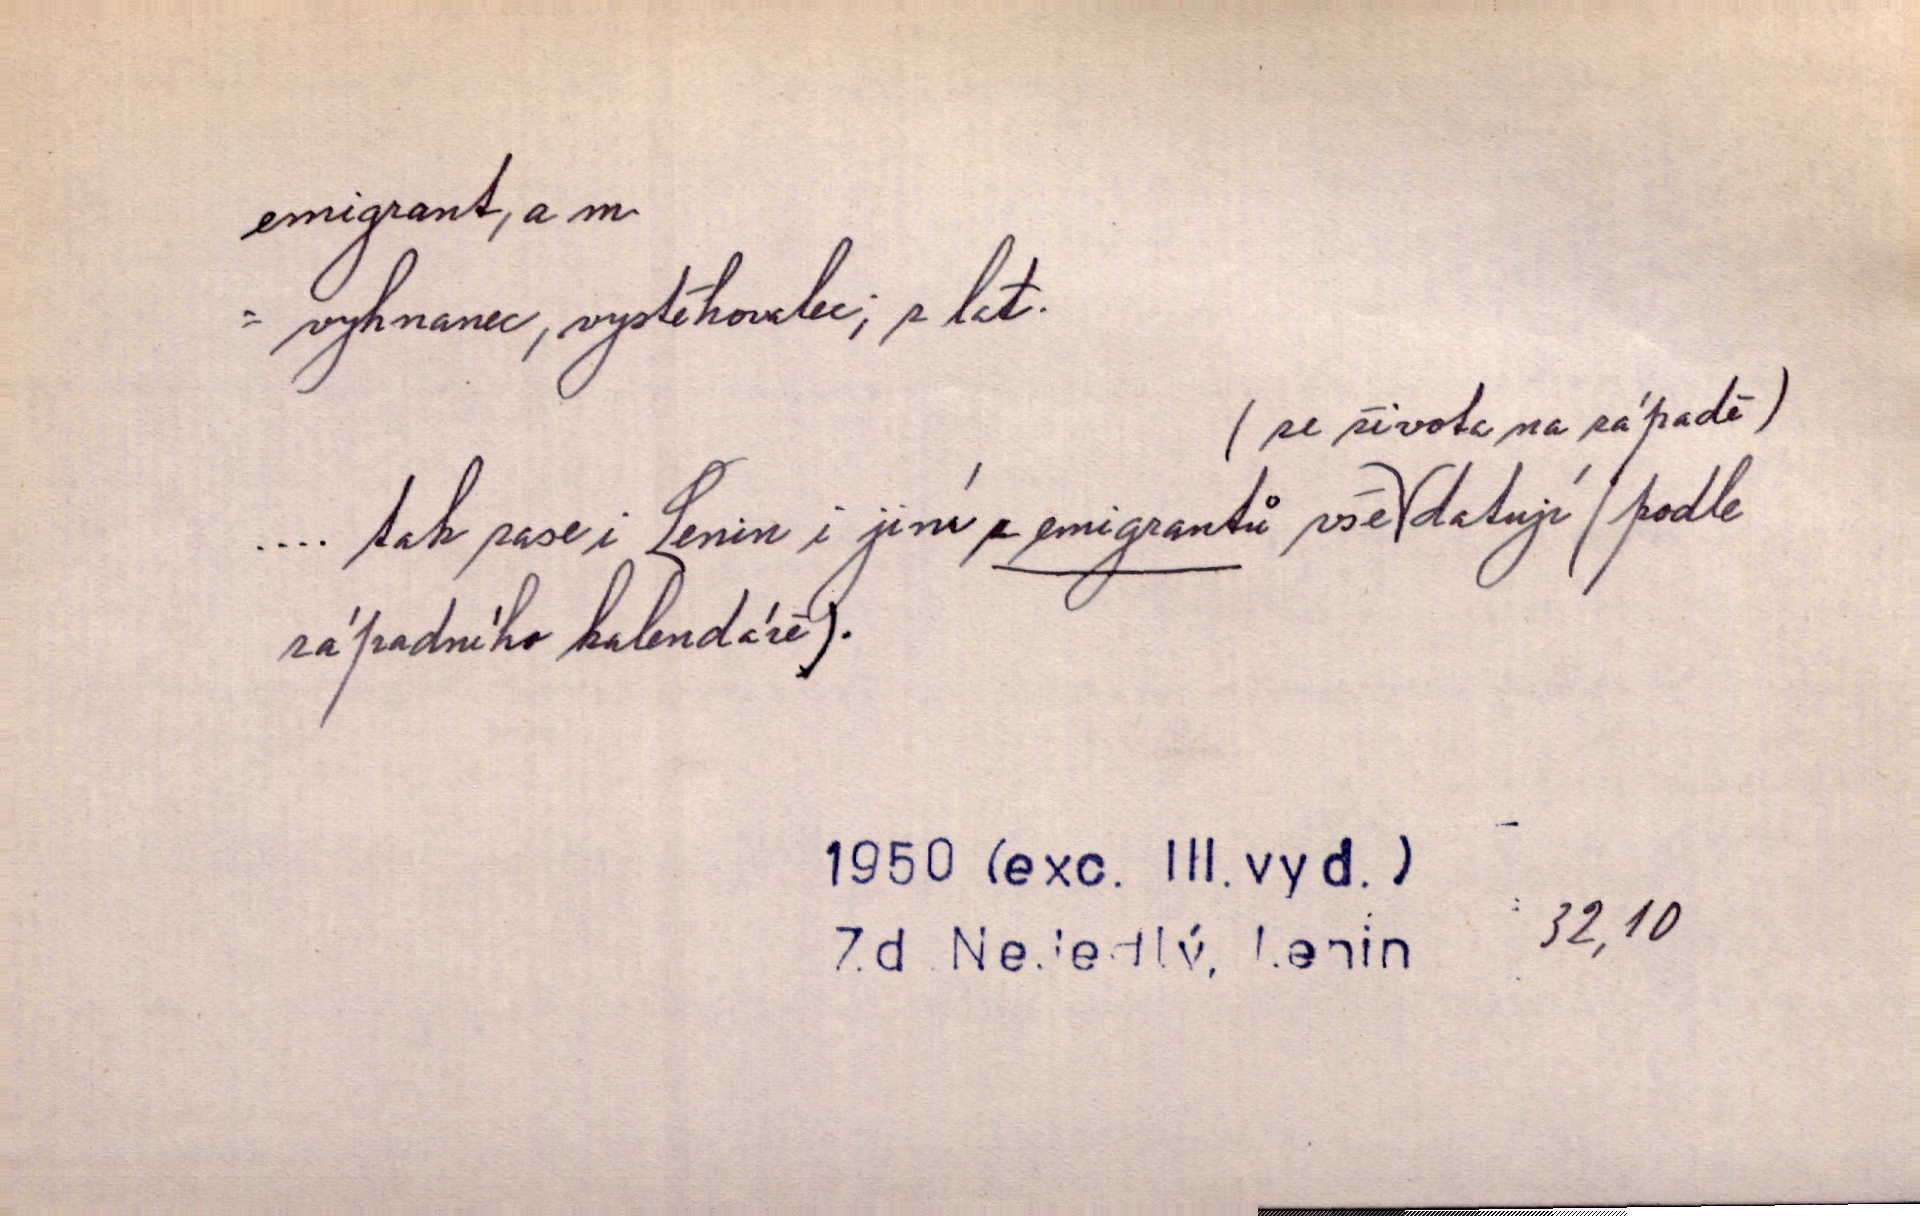 emigrant, a m.
= vyhnanec, vystěhovalec; z lat.
(ze života na západě)
.... tak zase i Lenin i jiní z emigrantů vše) (datují (podle
západního kalendáře).
1950 (exc. III. vyd.)
Zd. Nejedlý, Lenin
32,10